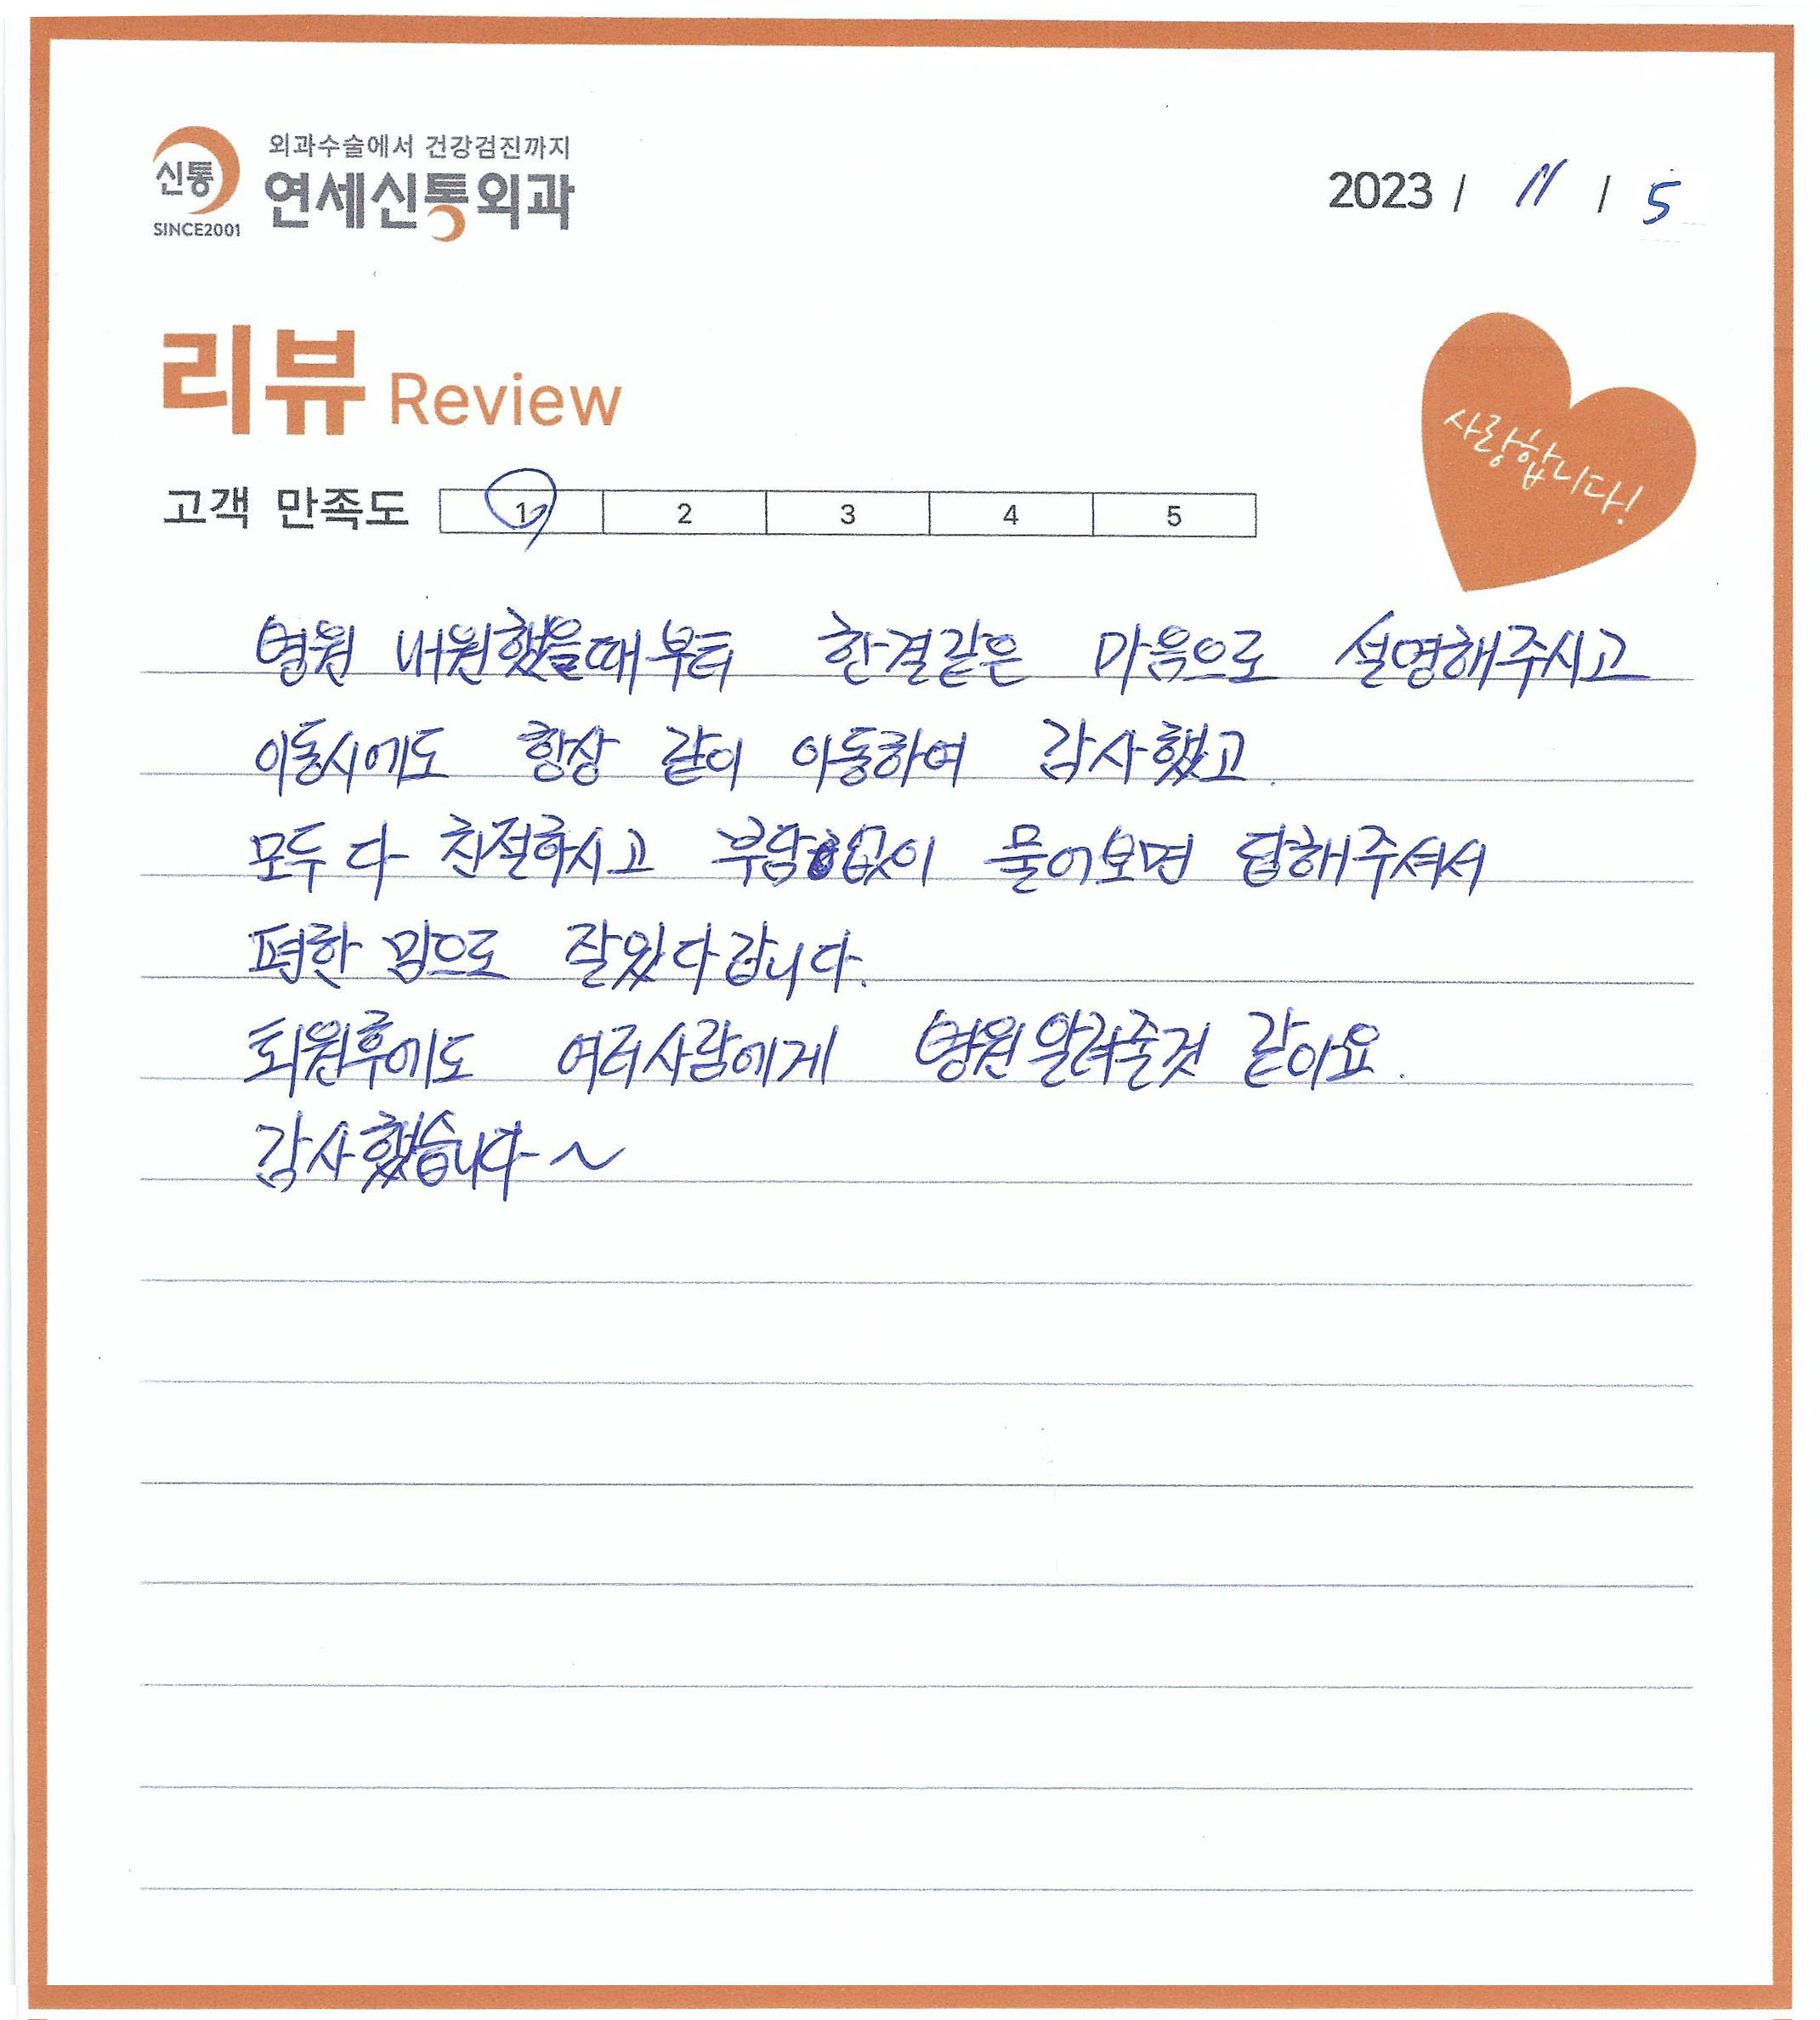 외과수술에서 건강검진까지
신통 연세신통외과
SINCE2001
2023 / 11 / 5
리뷰 Review
사랑합니다!
고객 만족도 1 2 3 4 5
병원 내원했을때부터 한결같은 마음으로 설명해주시고
이동시에도 항상 같이 이동하여 감사했고.
모두 다 친절하시고 부담없이 물어보면 답해주셔서
편한 맘으로 잘있다갑니다.
퇴원후에도 여러사람에게 병원알려줄것 같아요.
감사했습니다~